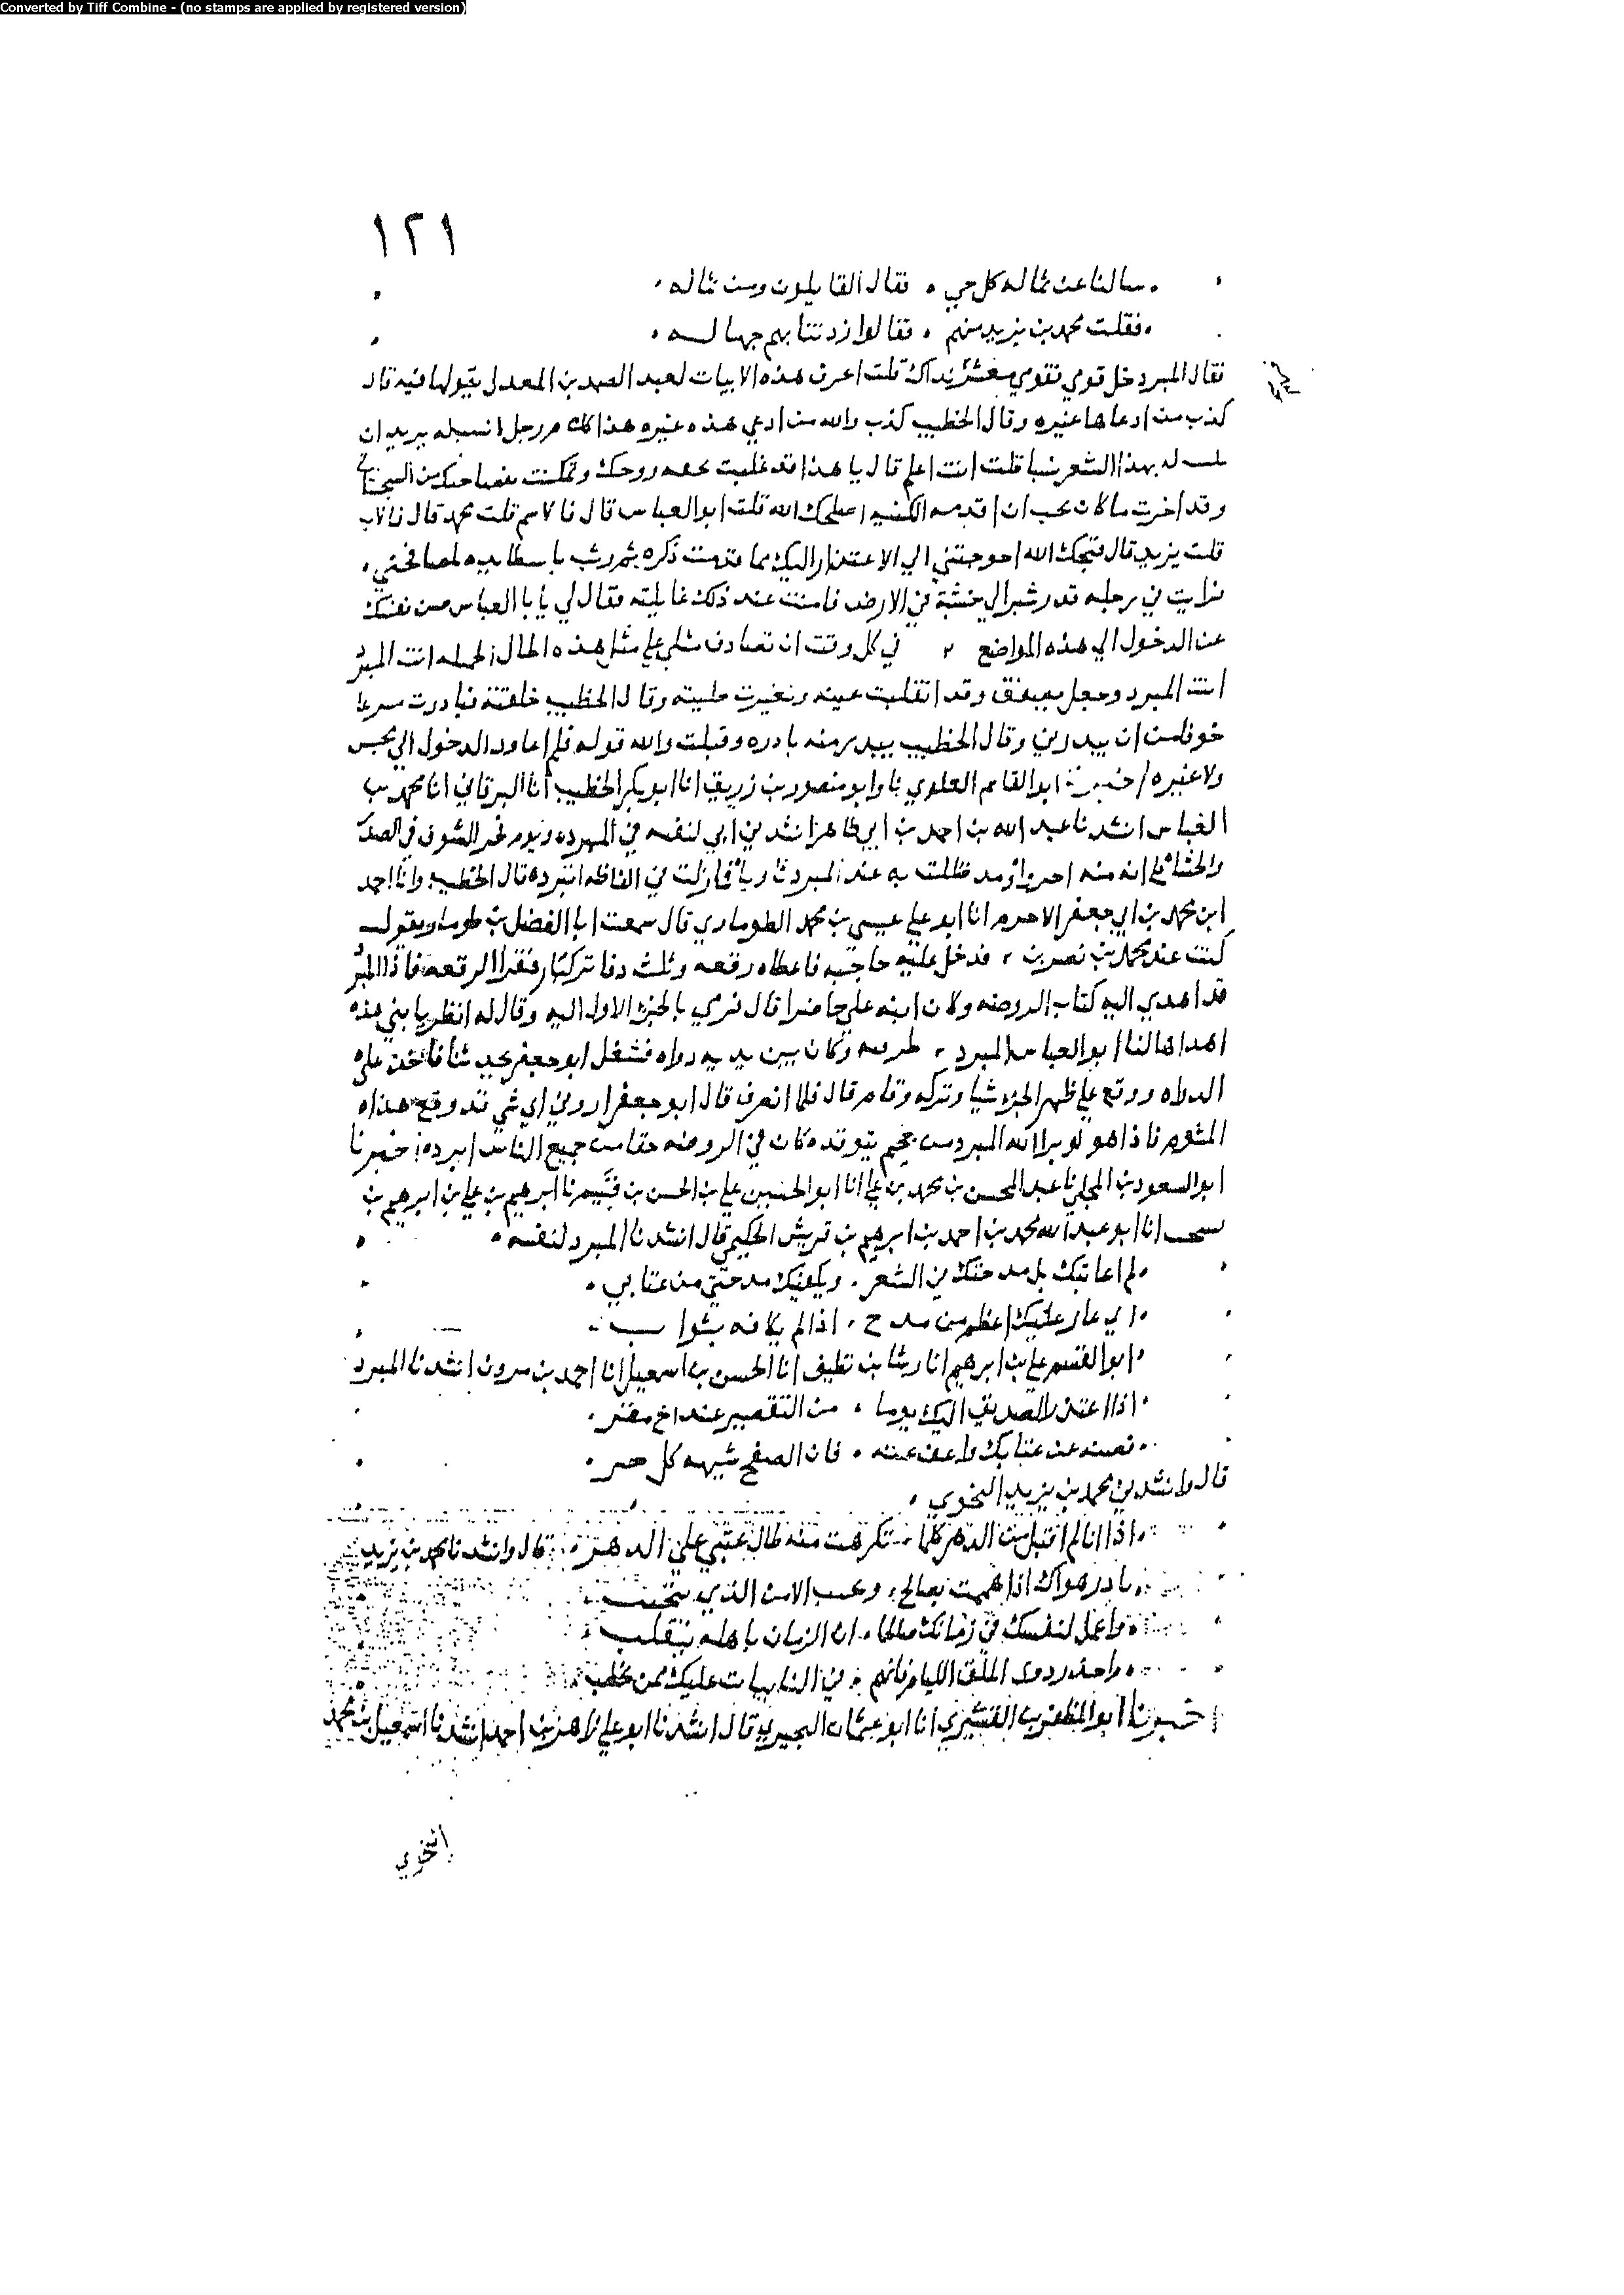 Converted by Tiff Combine - (no stamps are applied by registered version)
١٢١
سالنا عن ثماله كل حي فقال القايلون ومن ثماله
فقلت محمد بن يزيد منهم فقالوا زدتنا بهم جهاله
فقال المبرد خل قومي فقومي معشر نذاله قلت اعرف هذه الابيات لعبد الصمد بن المعدل يقولها فيه قال
كذب من ادعاها غيره وقال الخطيب كذب والله من ادعي هذه غيره هذا كلام رجل لا نسب له يريد ان
له بهذا الشعر نسبا قلت انت اعلم قال يا هذا قد غلبت روحك وتمكنت من
وقد اخرت ما كان يجب ان اقدمه الكنيه اصلحك الله قلت ابو العباس قال فالاسم قلت محمد قال فالاب
قلت يزيد قال قبحك الله احوجتني الي الاعتذار اليك مما قدمت ذكره ثم وثب باسطا يده لمصافحتي
فرايت في رجله قد شد الي خشبة في الارض فامنت عند ذلك غايلته فقال لي يا با العباس صن نفسك
عن الدخول الي هذه المواضع في كل وقت ان تصادف مثلي علي مثل هذه الحال الجميله انت المبرد
انت المبرد وجعل يصفق وقد انقلبت عينه وتغيرت حليته وقال الخطيب خلقته فبادرت مسرعا
خوفا من ان يبدرني وقال الخطيب يبدر منه بادره وقبلت والله قوله فلم اعاود الدخول الي محبس
ولا غيره اخبرنا ابو القاسم العلوي نا وابو منصور بن زريق انا ابو بكر الخطيب انا البرقاني انا محمد بن
العباس انشدنا عبد الله بن احمد بن ابي طاهر انشدني ابي لنفسه في المبرد ويوم كحر الشوق في الصدر
والحشا علي انه منه احر واومد ظللت به عند المبرد ثاويا فما زلت في الفاظه اتبرد قال الخطيب وانا احمد
ابن محمد بن ابي جعفر الاخرم انا ابو علي عيسي بن محمد الطوماري قال سمعت ابا الفضل بن طومار يقول
كنت عند محمد بن نصر بن فدخل عليه حاجبه فاعطاه رقعه وثلث دفاتر كبار فقرا الرقعه فاذا المبرد
قد اهدي اليه كتاب الروضه وكان ابنه علي حاضرا قال فرمي بالجزء الاول اليه وقال له انظر يا بني هذه
اهداها لنا ابو العباس المبرد وكان بين يديه دواه فشغل ابو جعفر يحدثنا فاخذ علي
الدواه ووقع علي ظهر الجزء شيا وتركه وقام قال فلما انصرف قال ابو جعفر اروني اي شي قد وقع هذا
المشوم فاذا هو لو برا الله المبرد من جحيم يتوقد كان في الروضه حقا من جميع الناس ابرد اخبرنا
ابو السعود بن المجلي نا عبد المحسن بن محمد بن علي انا ابو الحسين علي بن الحسن بن نا ابرهيم بن علي بن ابرهيم بن
انا ابو عبد الله محمد بن احمد بن ابرهيم بن قريش الحكيمي قال انشدنا المبرد لنفسه
لم اعاتبك بل مدحتك في الشعر ويكفيك مدحتي من عتابي
اي عار عليك اعظم من مدح اذا لم يكافه بثواب
ابو القسم علي بن ابرهيم انا رشا بن نظيف انا الحسن بن اسمعيل انا احمد بن مرون انشدنا المبرد
اذا اعتذر الصديق اليك يوما من التقصير عذر اخ مقر
فصنه عن عتابك واعف عنه فان الصفح شيمه كل حر
قال وانشدني محمد بن يزيد النحوي
اذا انا لم اقبل من الدهر كلما تكرهت منه طال عتبي علي الدهر قال وانشدنا محمد بن يزيد
بادر هواك اذا هممت بصالح الامر الذي يتجنب
واعمل لنفسك في زمانك صالحا ان الزمان باهله يتقلب
واحذر ذوي الملق الليام فانهم في النايبات عليك ممن
اخبرنا ابو المظفر بن القشيري انا ابو عثمان البحيري قال انشدنا ابو علي زاهر بن احمد انشدنا اسمعيل بن محمد
النحوي